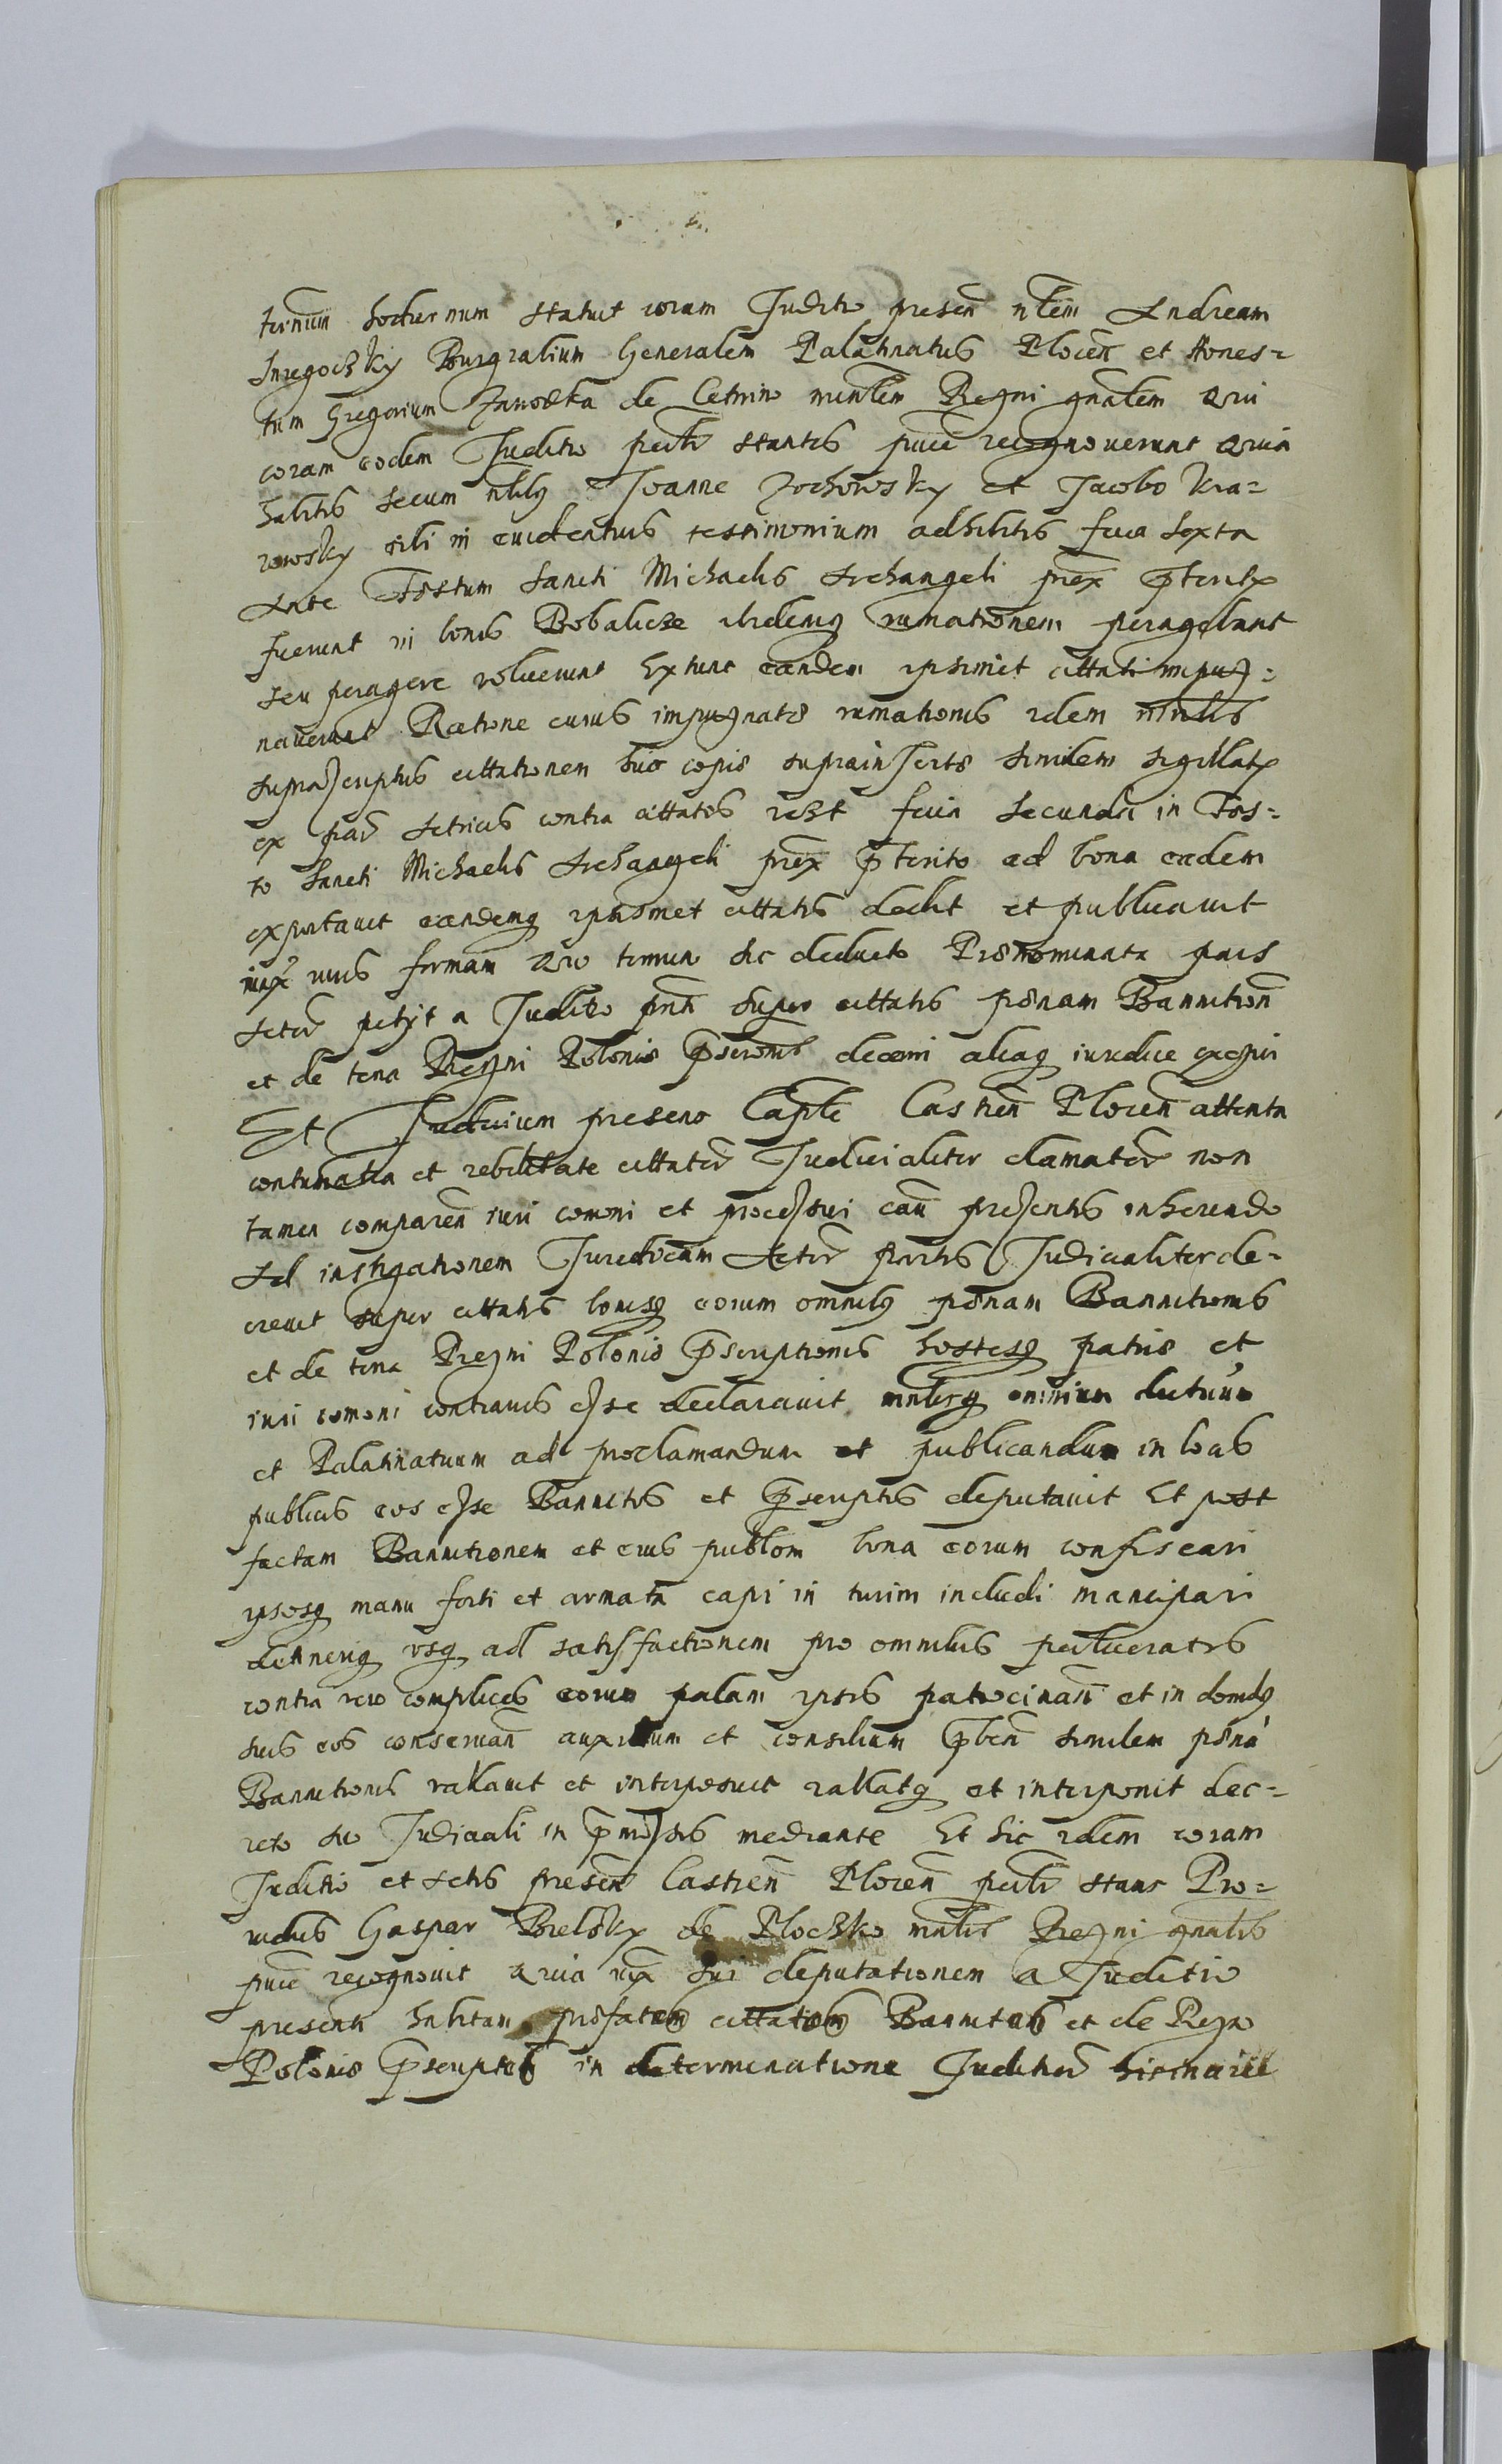 termīn hodiernum statuit coram Juditio presen nlem Andream
Burgrabium Generalem Palatinatus Plocen et Hones=
tum Gregorium de Cetnino minlem Regni gnalem Qui
coram eodem Juditio psonlr stantes puce recognoverunt Quia
habitis secum nlibus Joanne Zochowsky et Jacobo Kra=
rowsky sibi in evidentius testimonium adhibitis feria sexta
Ante Festum Sancti Michaelis Archangeli prox pterito
fuerunt in bonis Bobalicze ibidemq rumationem peragebant
seu peragere voluerunt Extunc eandem ipsimet cittati impug=
naverunt Ratione cuius impugnatae rumationis idem minlis
suprascriptus cittationem huic copie suprainserte similem sigillatam
ex parte Actricis contra cittatos feria secunda in Fes=
to Sancti Michaelis Archangeli prox pterito ad bona eadem
exportavit eandemq ipsismet cittatis dedit et publicavit
iuxta iuris formam Quo termino sic deducto Prenominata pars
Actor petiit a Juditio pnti super cittatis penam Bannition
et de terra Regni Polonie pscriptionis decerni aliaq iuridice exequi
Et Juditium presens Caple Castren Plocen attenta
contumatia et rebellitate cittator Judicialiter clamator non
tamen comparen iuri comoni et processui cau presentis inherendo
Ad instigationem Juridicam Actor partis Judicialiter de=
crevit super cittatis bonisq eorum omnibq penam Bannitionis
et de terra Regni Polonie pscriptionis hostesq patrie et
iuri comoni contrarios esse declaravit minlesq omnium dictriuum
et Palatinatuum ad proclamandum et publicandum in locis
publicis eos esse Bannitos et pscriptos deputavit Et post
factam Bannitionem et eius publom bona eorum confiscari
ipsosq manu forti et armata capi in turim includi mancipari
detineriq usq ad satisfactionem pro omnibus
contra vero complices eorum palam ipsis patrocinan et in domibq
suis eos conservan auxilium et consilium pben similem pena
Bannitionis vallavit et interposuit vallatq et interponit dec=
reto suo Judiciali in pmissis mediante Et hic idem coram
Juditio et Actis presen Castren Plocen psonlr stans Pro=
vidus Gaspar Bielsky de Ploczko minlis Regni gnalis
puce recognovit Quia iux sui deputationem a Juditio
presenti habitam prefatos cittatos Bannitos et de Regno
Polonie pscriptos in determinatione Juditior